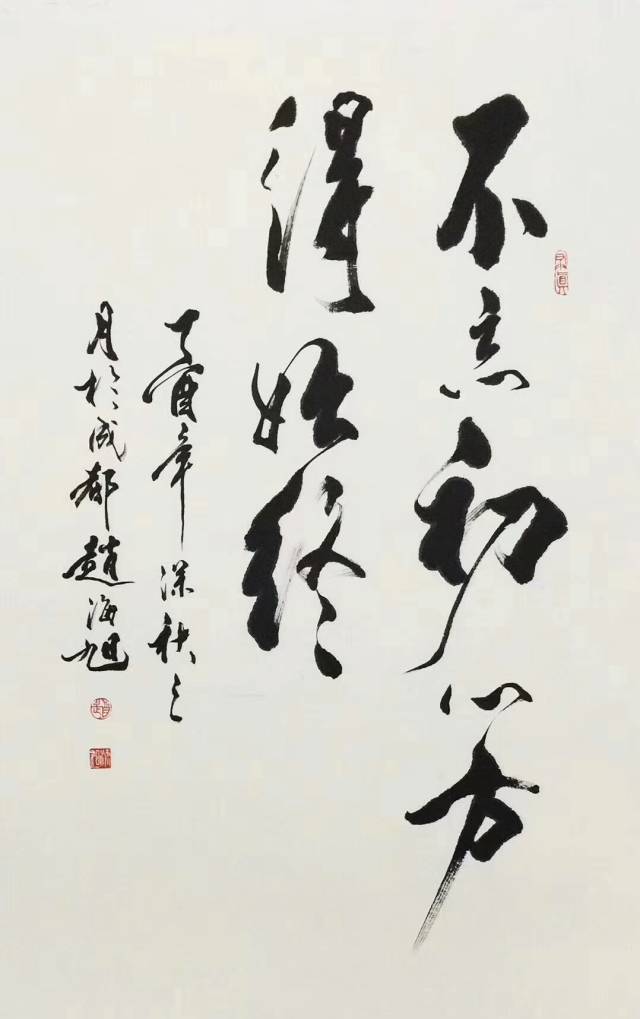 不忘初心方
得始终
丁酉年深秋之
月於成都趙海旭